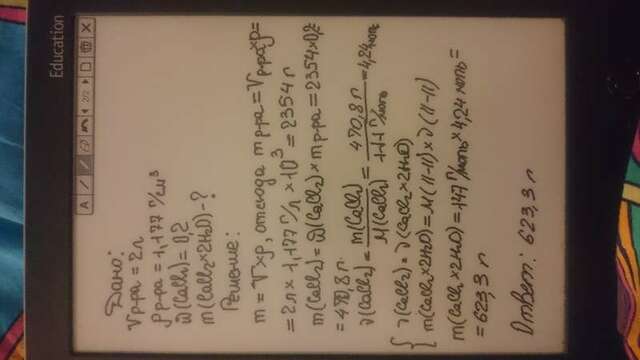 Education
A
2/2
Дано:
Vр-ра = 2л
ρр-ра = 1,177 г/см³
ω(CaCl₂) = 0,2
m(CaCl₂×2H₂O) - ?
Решение:
m = V×ρ, отсюда mр-ра = Vр-ра×ρ =
= 2л × 1,177 г/л × 10³ = 2354 г
m(CaCl₂) = ω(CaCl₂) × mр-ра = 2354×0,2
= 470,8 г.
ν(CaCl₂) = m(CaCl₂)/M(CaCl₂) = 470,8 г/111 г/моль = 4,24 моль
{ ν(CaCl₂) = ν(CaCl₂×2H₂O)
m(CaCl₂×2H₂O) = M(11-11) × ν(11-11)
m(CaCl₂×2H₂O) = 147 г/моль × 4,24 моль =
= 623,3 г
Ответ: 623,3 г